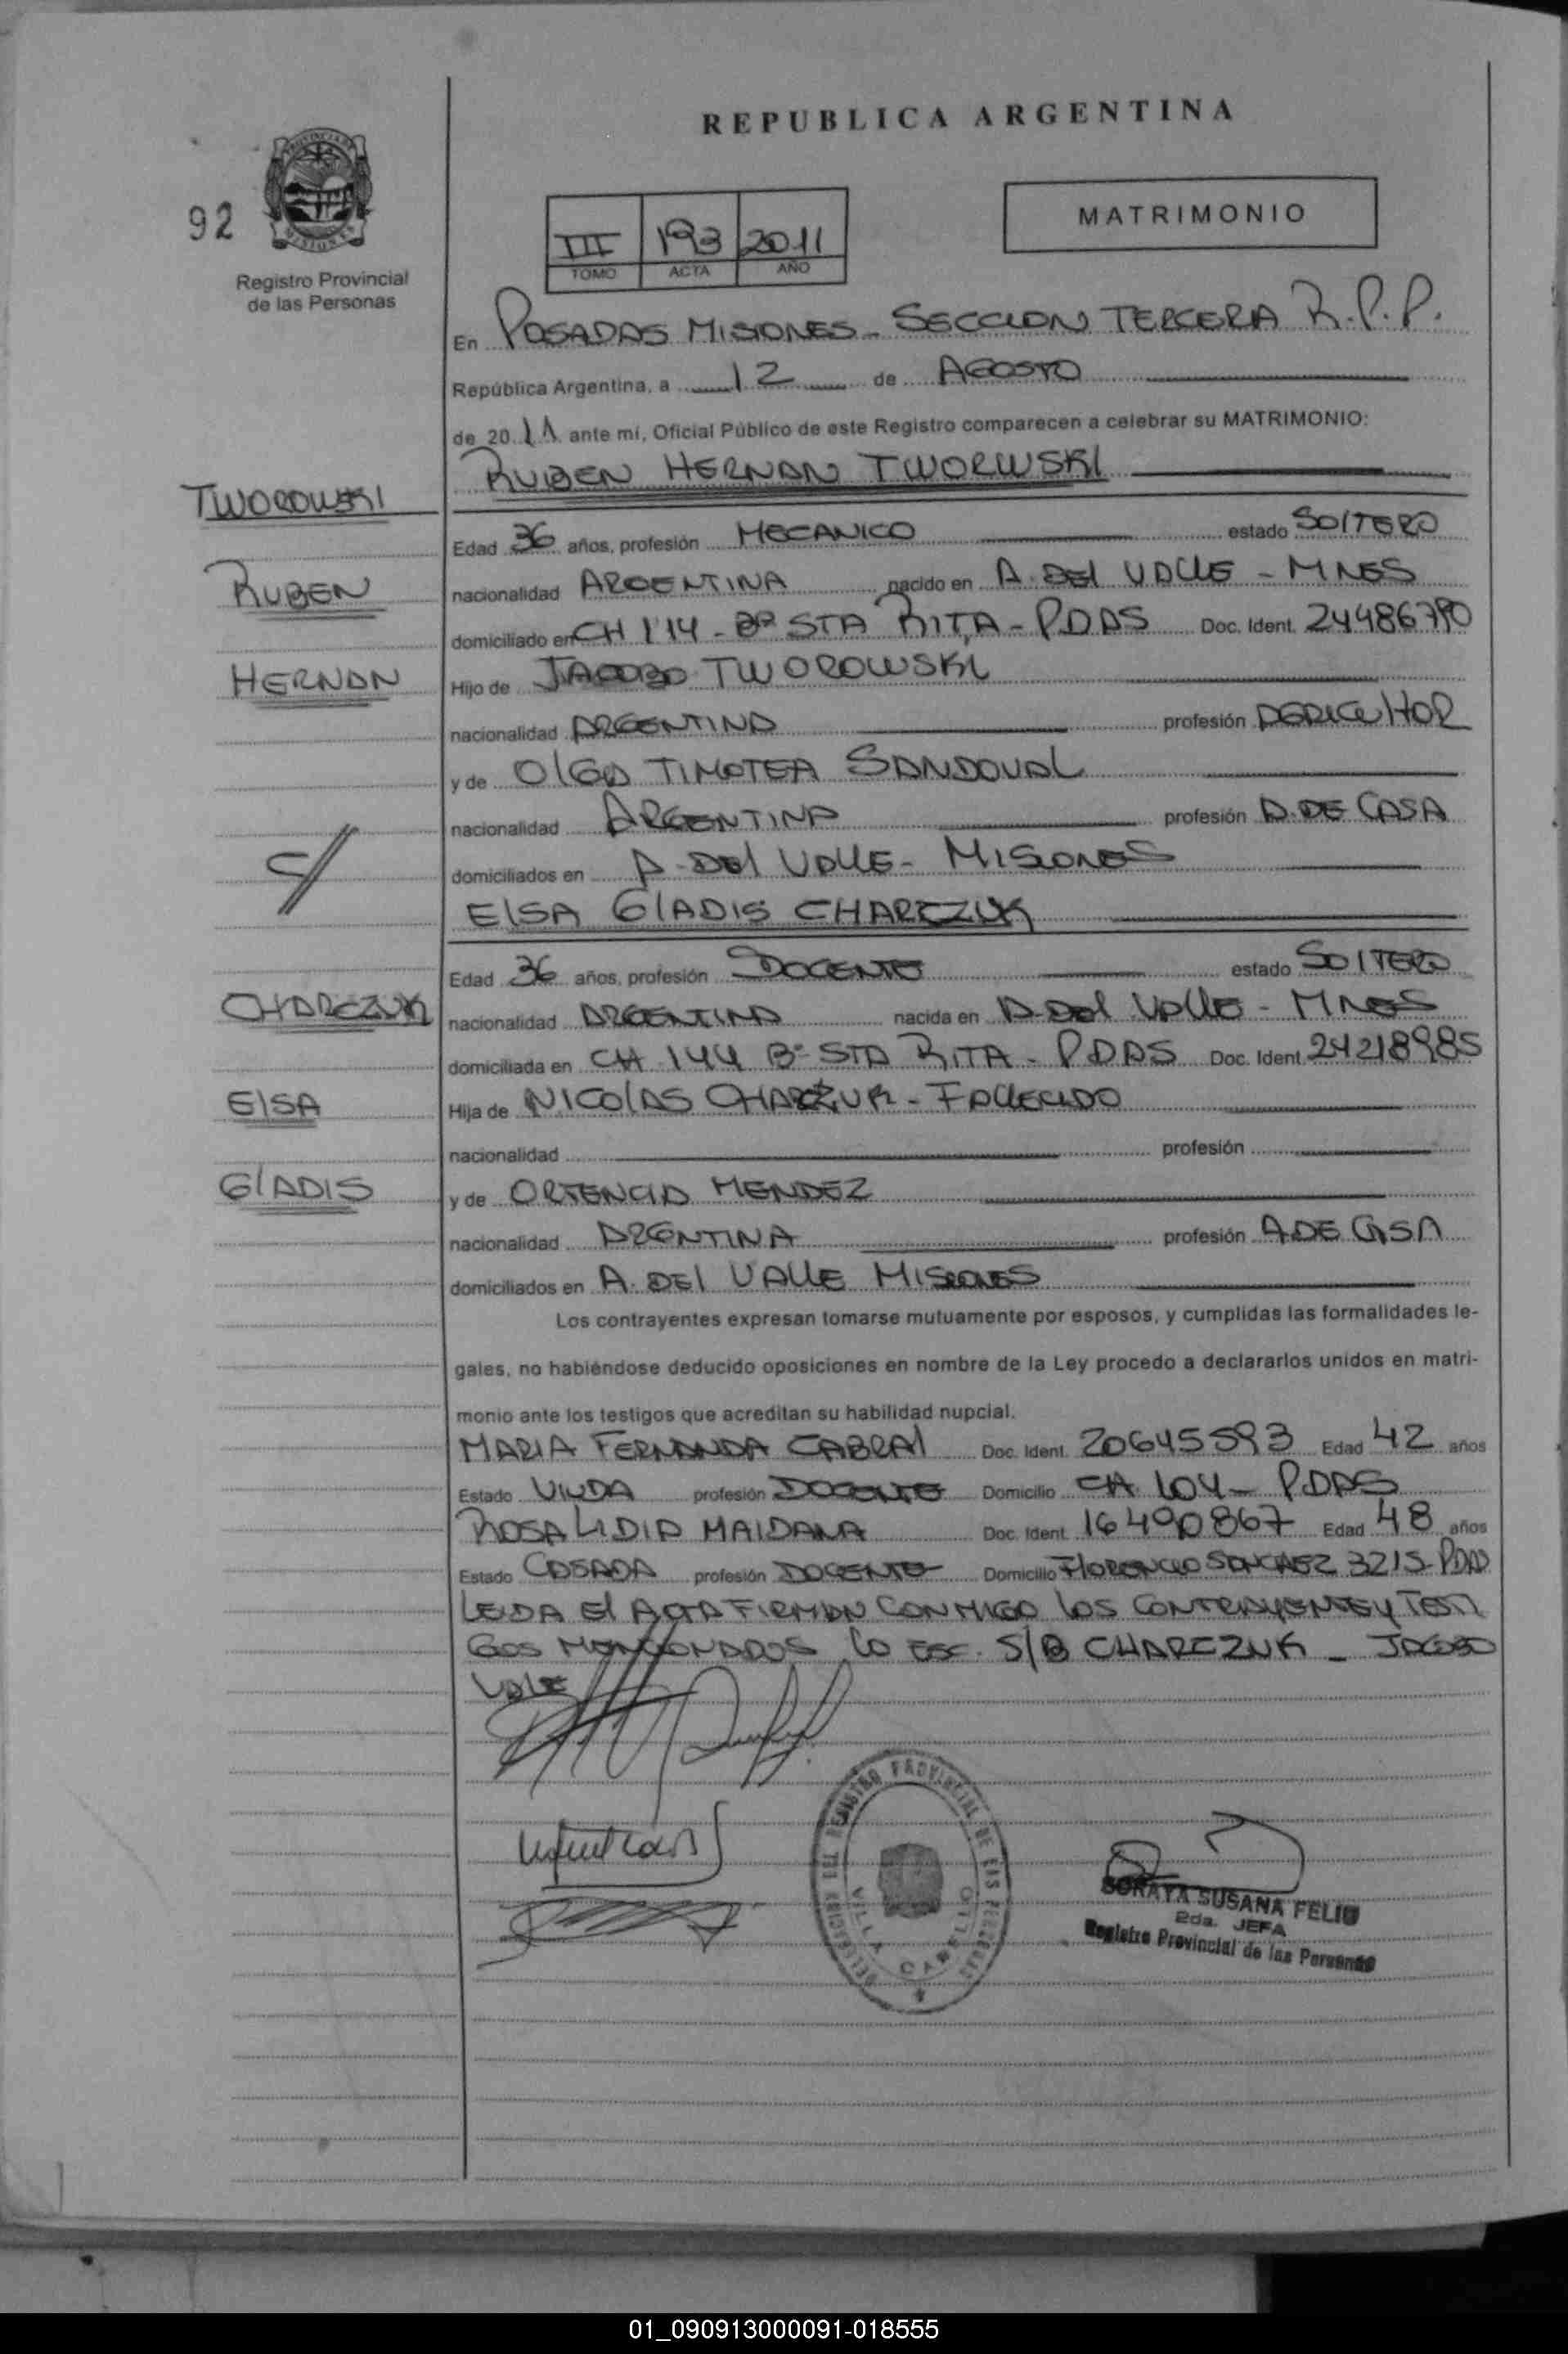 REPUBLICA ARGENTINA
92
PROVINCIA DE MISIONES
Registro Provincial
de las Personas
III 193 2011
TOMO ACTA AÑO
MATRIMONIO
En POSADAS MISIONES - SECCION TERCERA R.P.P.
República Argentina, a 12 de AGOSTO
de 2011 ante mí, Oficial Público de este Registro comparecen a celebrar su MATRIMONIO:
RUBEN HERNAN TWORWSKI
TWOROWSKI
Edad 36 años, profesión MECANICO estado SOLTERO
RUBEN
nacionalidad ARGENTINA nacido en A. DEL VALLE - MNES
domiciliado en CH 114 - Bº STA RITA - PDAS Doc. Ident. 24486790
HERNAN
Hijo de JACOBO TWOROWSKI
nacionalidad ARGENTINA profesión AGRICULTOR
y de OLGA TIMOTEA SANDOVAL
nacionalidad ARGENTINA profesión A. DE CASA
C/
domiciliados en A. DEL VALLE - MISIONES
ELSA GLADIS CHARCZUK
Edad 36 años, profesión DOCENTE estado SOLTERO
CHARCZUK
nacionalidad ARGENTINA nacida en A. DEL VALLE - MNES
domiciliada en CH 144 Bº STA RITA - PDAS Doc. Ident. 24218985
ELSA
Hija de NICOLAS - FALLECIDO
nacionalidad profesión
GLADIS
y de ORTENCIA MENDEZ
nacionalidad ARGENTINA profesión A DE CASA
domiciliados en A. DEL VALLE MISIONES
Los contrayentes expresan tomarse mutuamente por esposos, y cumplidas las formalidades le-
gales, no habiéndose deducido oposiciones en nombre de la Ley procedo a declararlos unidos en matri-
monio ante los testigos que acreditan su habilidad nupcial.
MARIA FERNANDA CABRAL Doc. Ident. 20645593 Edad 42 años
Estado VIUDA profesión DOCENTE Domicilio CH. 104 - PDAS
ROSA LIDIA MAIDANA Doc. Ident. 16490867 Edad 48 años
Estado CASADA profesión DOCENTE Domicilio FLORENCIO SANCHEZ 3215 - PDAS
LEIDA EL ACTA FIRMAN CONMIGO LOS CONTRAYENTES Y TESTI
GOS MENCIONADOS LO ESC. S/B CHARCZUK - JACOBO
VALE
DELEGACION DEL REGISTRO PROVINCIAL DE LAS PERSONAS
VILLA CABELLO
SORAYA SUSANA FELIU
2da. JEFA
Registro Provincial de las Personas
01_090913000091-018555